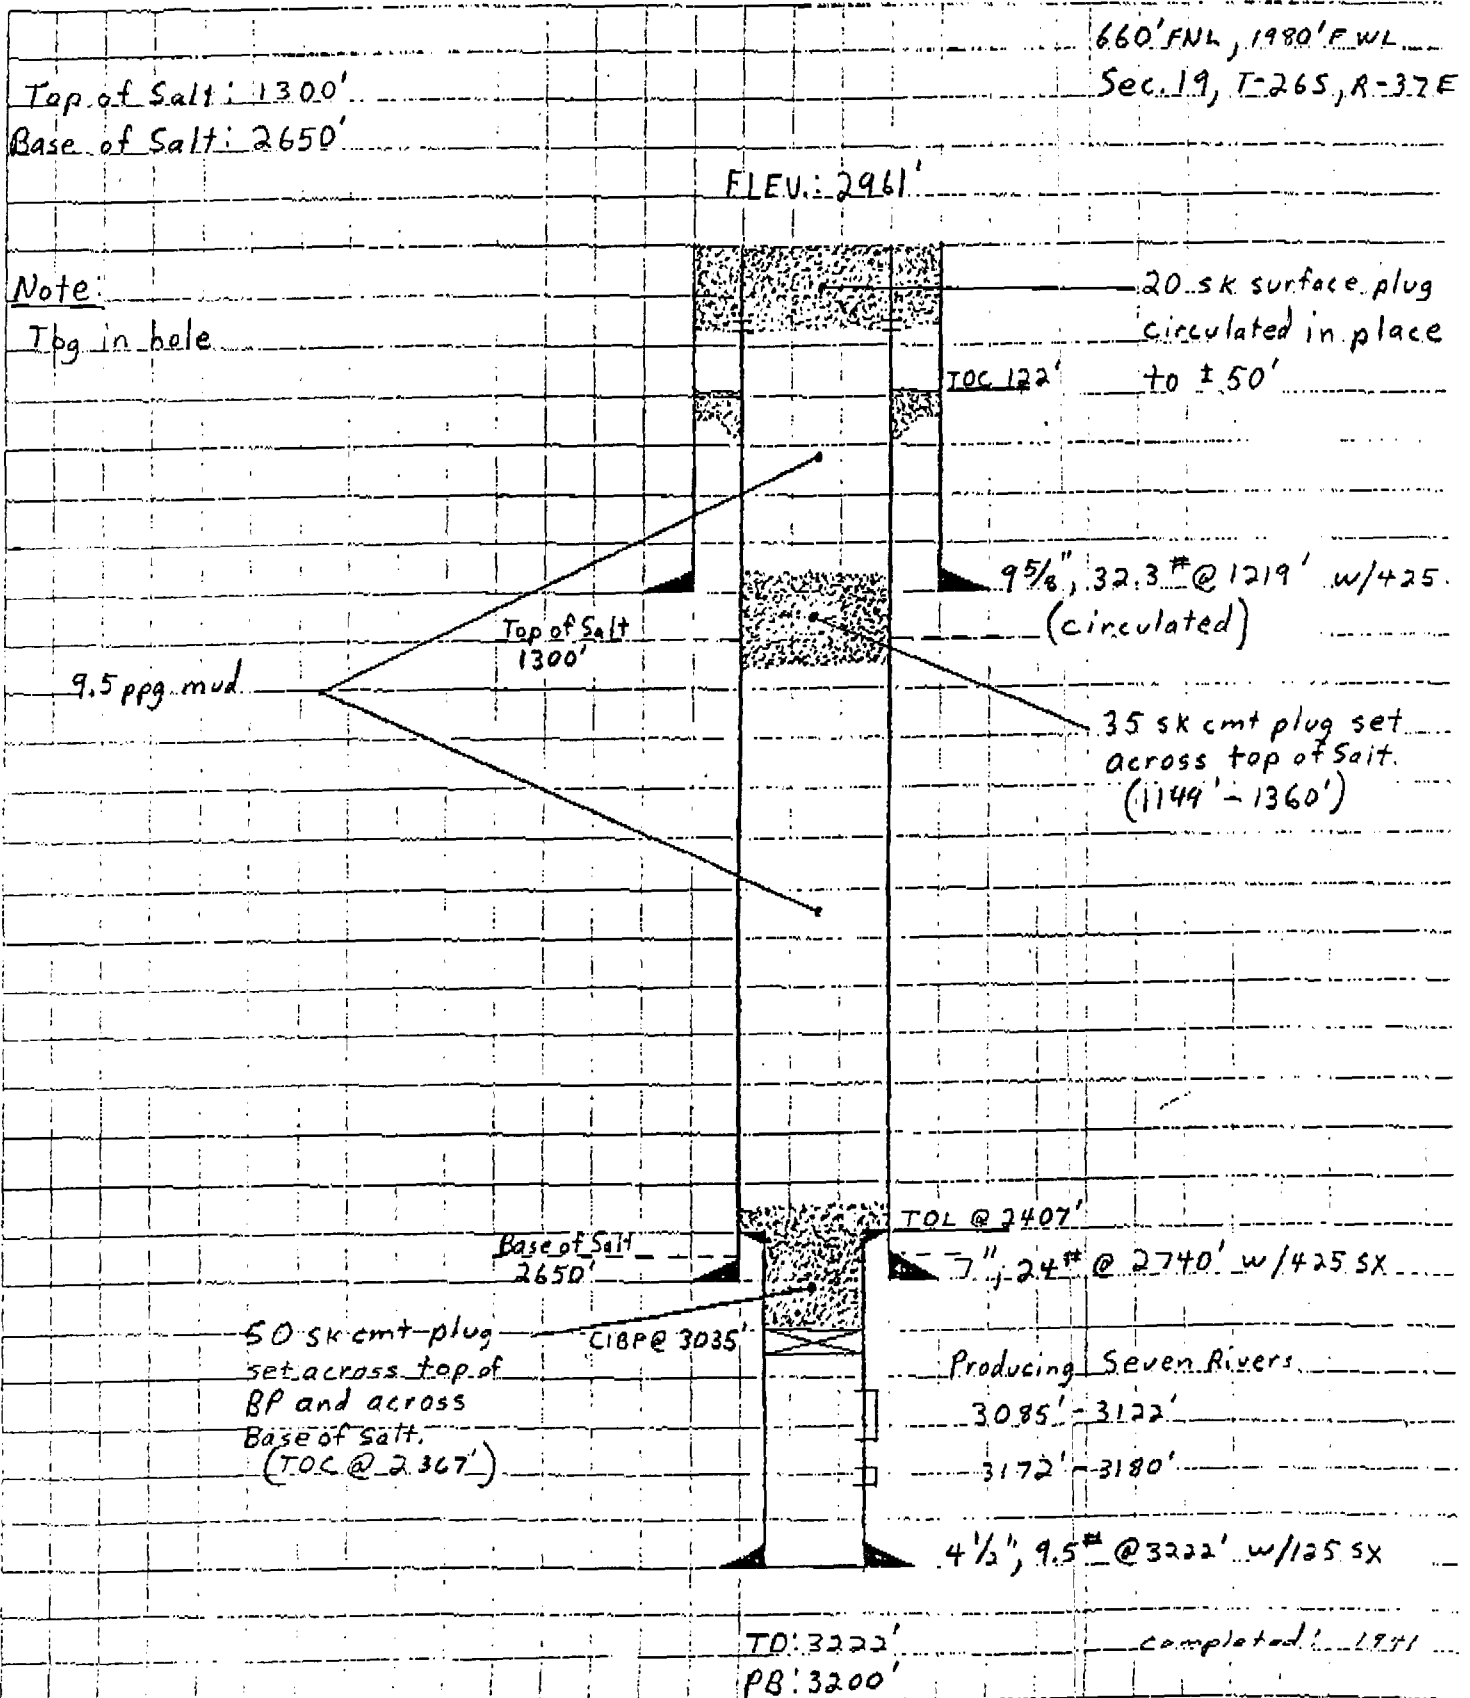 660' FNL, 1980' FWL
Sec. 19, T-26S, R-37E
Top of Salt: 1300'
Base of Salt: 2650'
ELEV.: 2961'
Note:
Tbg in hole
20 sk surface plug
circulated in place
to ± 50'
TOC 122'
9 5/8", 32.3 # @ 1219' w/425.
(circulated)
Top of Salt
1300'
9.5 ppg mud
35 sk cmt plug set
across top of Salt.
(1149' - 1360')
TOL @ 2407'
Base of Salt
2650'
7", 24 # @ 2740' w/425 SX
50 sk cmt plug
set across top of
BP and across
Base of Salt.
(TOC @ 2367')
CIBP @ 3035'
Producing Seven Rivers
3085' - 3122'
3172' - 3180'
4 1/2", 9.5 # @ 3222' w/125 SX
TD: 3222'
PB: 3200'
completed: